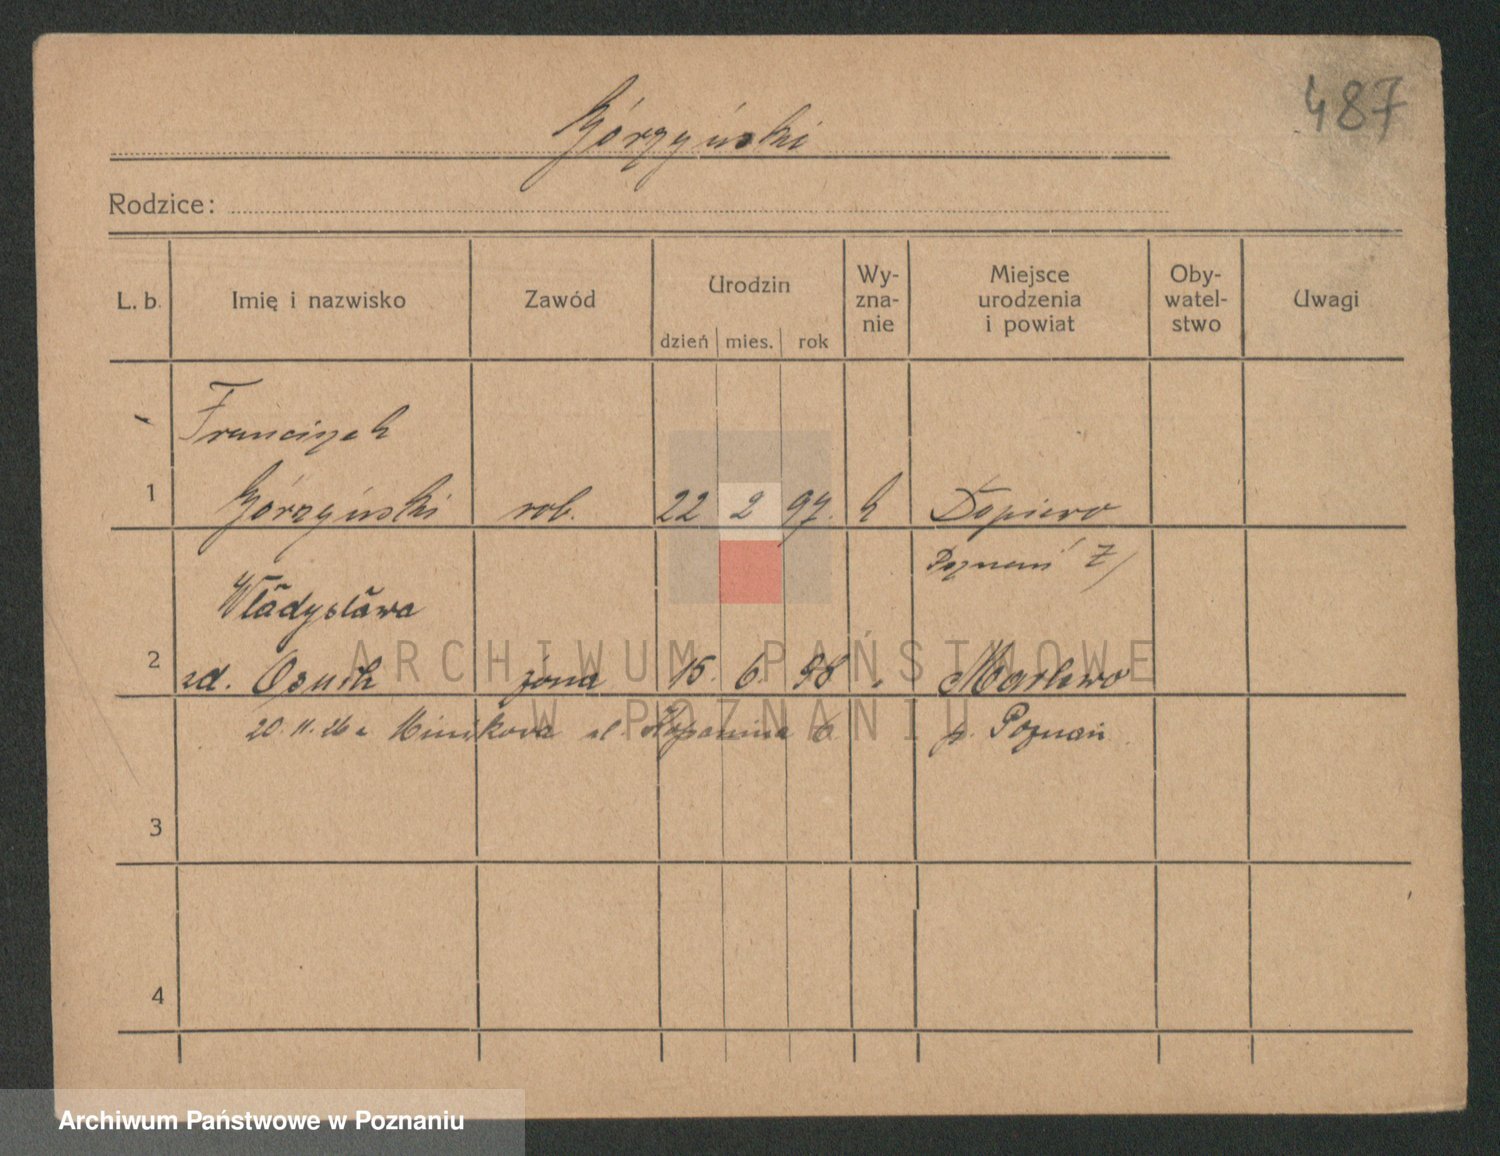 487
Górzyński
Rodzice:
L. b.
Imię i nazwisko
Zawód
Urodzin
dzień mies. rok
Wy-
zna-
nie
Miejsce
urodzenia
i powiat
Oby-
watel-
stwo
Uwagi
Franciszek
1 Górzyński rob. 22 2 97. k Dopiewo
Poznań Z/
Władysława
2 zd. żona 15. 6. 98 „ Marlewo
20. 11. 26 z Minikowa ul. Kopanina 6 p. Poznań
3
4
ARCHIWUM PAŃSTWOWE
W POZNANIU
Archiwum Państwowe w Poznaniu